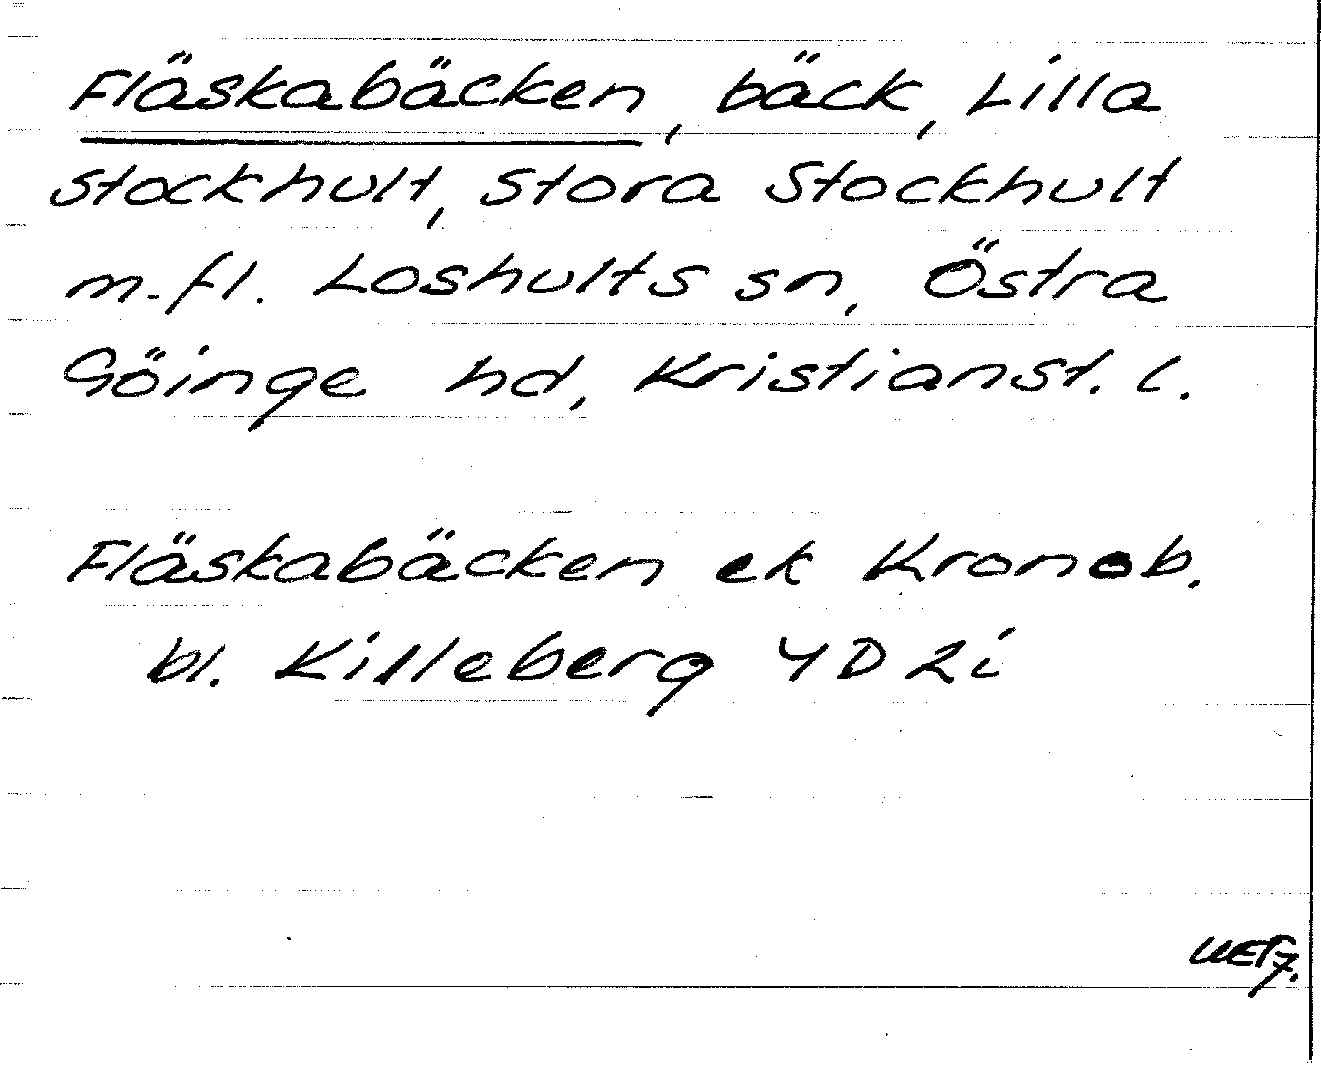 Fläskabäcken, bäck, Lilla
Stockhult, Stora Stockhult
m.fl. Loshults sn, Östra
Göinge hd, Kristianst. l.
Fläskabäcken ek Kronob.
bl. Killeberg 4D2i